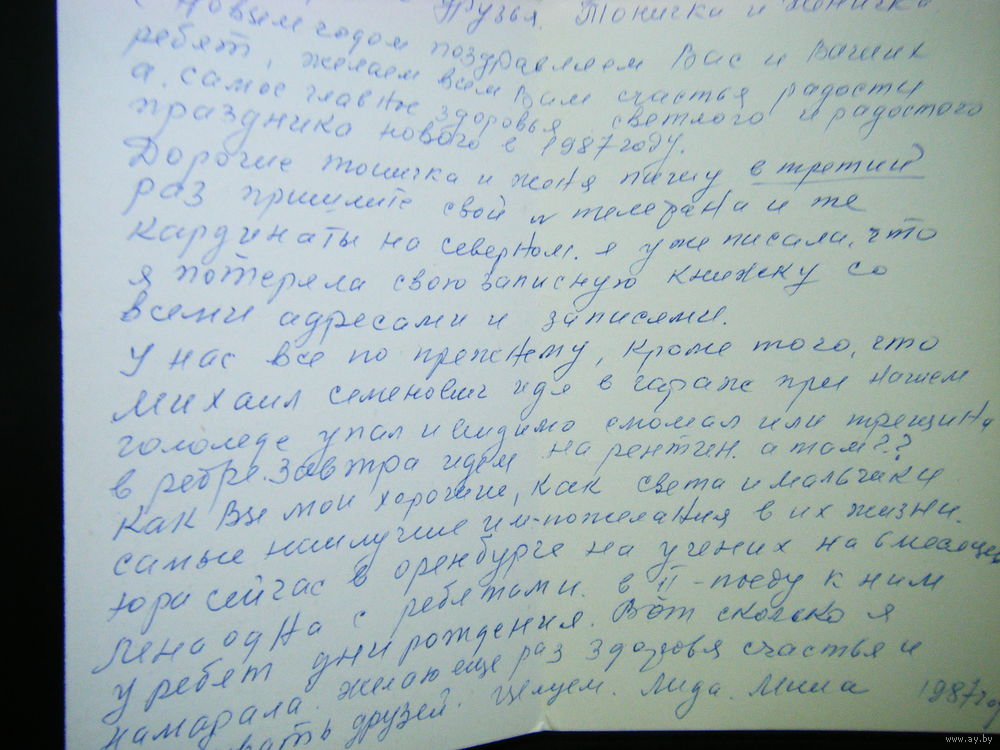 с Новым годом друзья. Тоничка и Женичка
поздравляем Вас и Ваших
ребят, желаем всем Вам счастья радости
а самое главное здоровья, светлого и радостого
праздника нового с 1987 году.
Дорогие тоничка и женя пишу в третий
раз пришлите свой № телефана и же
кардинаты на северном. я уже писала, что
я потеряла свою записную книжку со
всеми адресами и записями.
У нас все по прежнему, кроме того, что
Михаил Семенович идя в гараж при нашем
гололеде упал и видимо сломал или трещина
в ребре. Завтра идем на рентген. а там??
Как Вы мои хорошие, как света и мальчики
самые наилучшие им-пожелания в их жизни.
Юра сейчас в оренбурге на учених на 6 месяцев
Лена одна с ребятами. в II-поеду к ним
у ребят дни рождения. Вот сколько я
намарала. желаю еще раз здоровья счастье и
друзей. Целуем. Лида. Миша 1987 год
www.ay.by